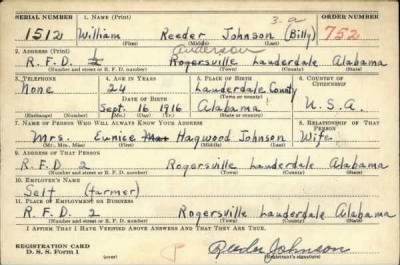 SERIAL NUMBER 1. NAME (Print) ORDER NUMBER
3-a
1512 William Reeder Johnson (Billy) 752
(First) (Middle) (Last)
2. ADDRESS (Print) Anderson
R. F. D. Rogersville Lauderdale Alabama
(Number and street or R. F. D. number) (Town) (County) (State)
3. TELEPHONE 4. AGE IN YEARS 5. PLACE OF BIRTH 6. COUNTRY OF CITIZENSHIP
None 24 Lauderdale County
(Town or county)
DATE OF BIRTH
Sept. 16 1916 Alabama U. S. A.
(Exchange) (Number) (Mo.) (Day) (Yr.) (State or country)
7. NAME OF PERSON WHO WILL ALWAYS KNOW YOUR ADDRESS 8. RELATIONSHIP OF THAT PERSON
Mrs. Eunice Hagwood Johnson Wife
(Mr., Mrs., Miss) (First) (Middle) (Last)
9. ADDRESS OF THAT PERSON
R. F. D 2 Rogersville Lauderdale Alabama
(Number and street or R. F. D. number) (Town) (County) (State)
10. EMPLOYER'S NAME
Self (farmer)
11. PLACE OF EMPLOYMENT OR BUSINESS
R. F. D. 2 Rogersville Lauderdale Alabama
(Number and street or R. F. D. number) (Town) (County) (State)
I AFFIRM THAT I HAVE VERIFIED ABOVE ANSWERS AND THAT THEY ARE TRUE.
REGISTRATION CARD
D. S. S. Form 1 Reeder Johnson
(Registrant's signature)